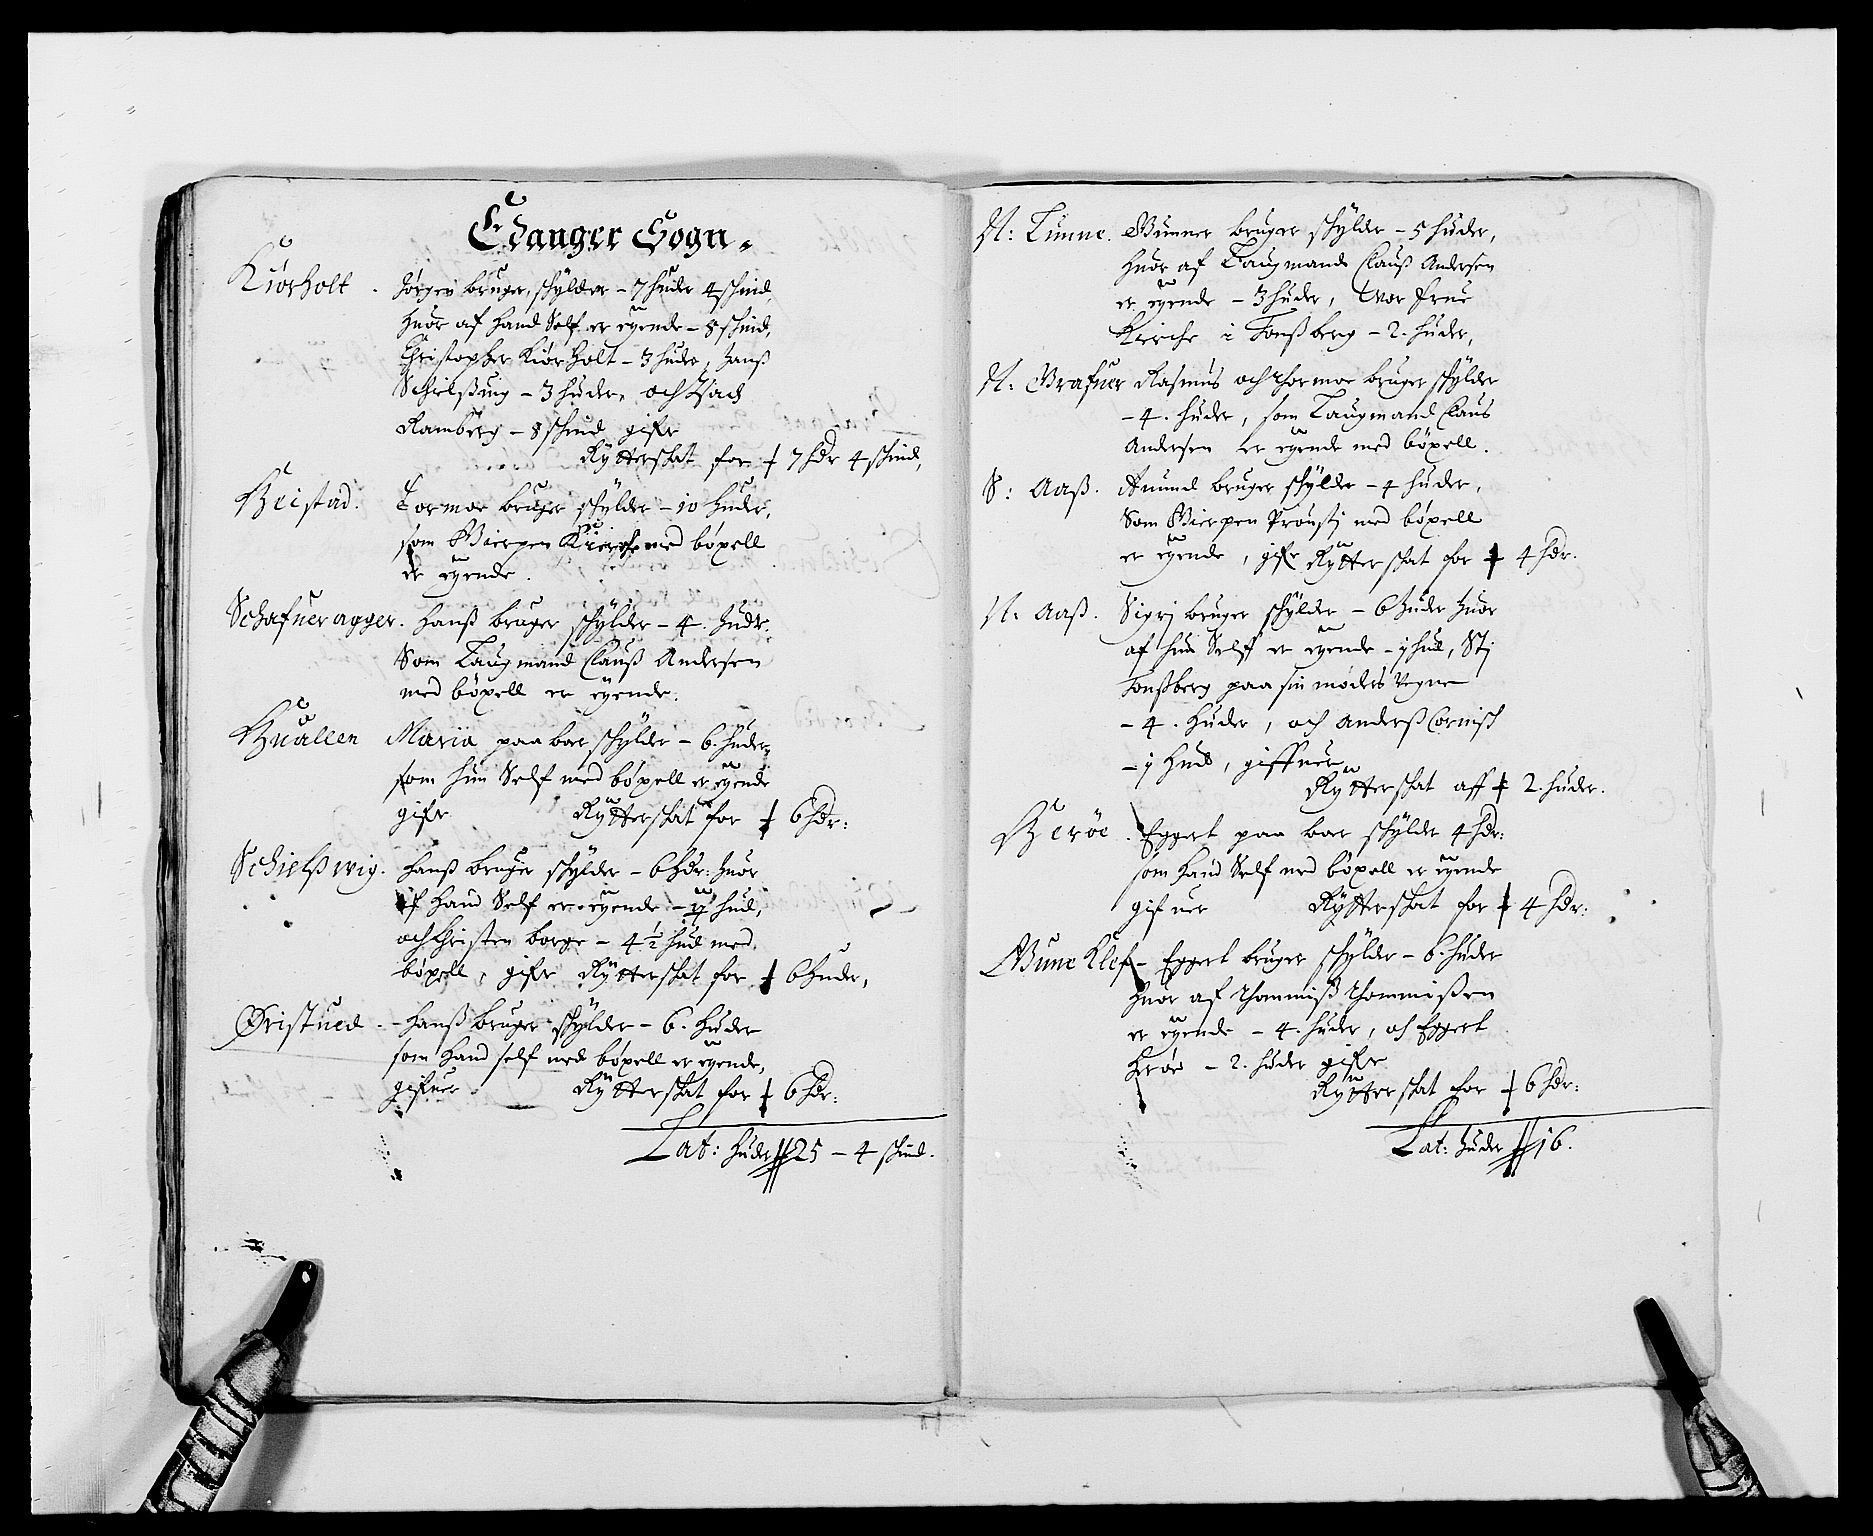 Edanger Sogn.
Kiørholt. Jørgen bruger, schylder – 7 huder 4 schind,
huor af hand Self er eyende – 8 schind,
Christopher Kiørholt – 3 huder, Hanß
Schielßuig – 3 huder, och Isach
Ramberg – 8 schind gifr
Rytterskat for ⸸ 7 hdr 4 schind,
Heistad. Tormoe bruger schylder – 10 huder,
som Gierpen Kierche med böxell
er eyende.
Schafueragger. Hanß bruger schylder – 4. Hudr.
Som Laugmand Clauß Andersen
med böxell er eyende.
Huallen Maria paa boer schylder – 6. huder,
som hun Self med böxell er eyende
gifr Rytterskat for ⸸ 6 hdr:
Schielßwig. Hanß bruger schylder – 6 hdr: huor
af hand Self er eyende – hud,
och Christen borge – 4½ hud med
böxell, gifr Rytterskat for ⸸ 6 huder,
Øristued. – Hanß bruger schylder – 6. huder
som hand self med böxell er eyende,
gifuer Rytterskat for ⸸ 6 hdr:
Lat: huder 25 – 4 schind.
N: Tunne. Gunner bruger schylder – 5 huder,
huor af Laugmand Clauß Andersen
er eyende – 3 huder, Wor frue
Kirche i Tonßberg – 2. huder,
N: Grafuer Rasmus och Thormoe bruger schylder
– 4. huder, som Laugmand Claus
Andersen er eyende med böxell.
S: Aaß. Amund bruger schylder – 4 huder,
Som Gierpen Prousti med böxell
er eyende, gifr Rytterskat for ⸸ 4 hdr.
N: Aaß. Sigrj bruger schylder – 6 huder huor
af hun Self er eyende – 1 hud, Stj
Tonßberg paa sin moders Vegne
– 4. huder, och Anderß Cornisch
– 1 hud, giffuer
Rytterskat aff ⸸ 2. huder.
Herøe. Eggert paa boer schylder 4 hdr:
som hand Self med böxell er eyende
gifuer Rytterskat for ⸸ 4 hdr:
Guneklef – Eggert bruger schylder – 6. huder
huor af Thommiß Thommißen
er eyende – 4. huder, och Eggert
herøe – 2. huder gifr
Rytterskat for ⸸ 6 hdr:
Lat: huder 16.